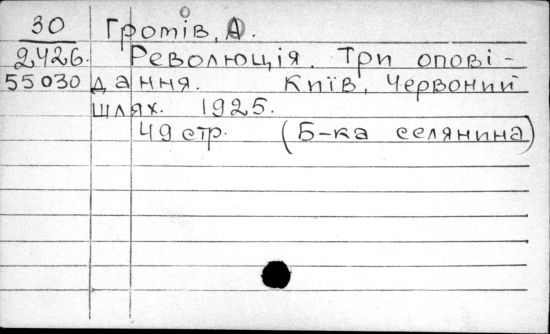 30 Громів, А.
2426. Революція. Три опові-
55030 дання. Київ, Червоний
шлях. 1925.
49 стр. (Б-ка селянина)